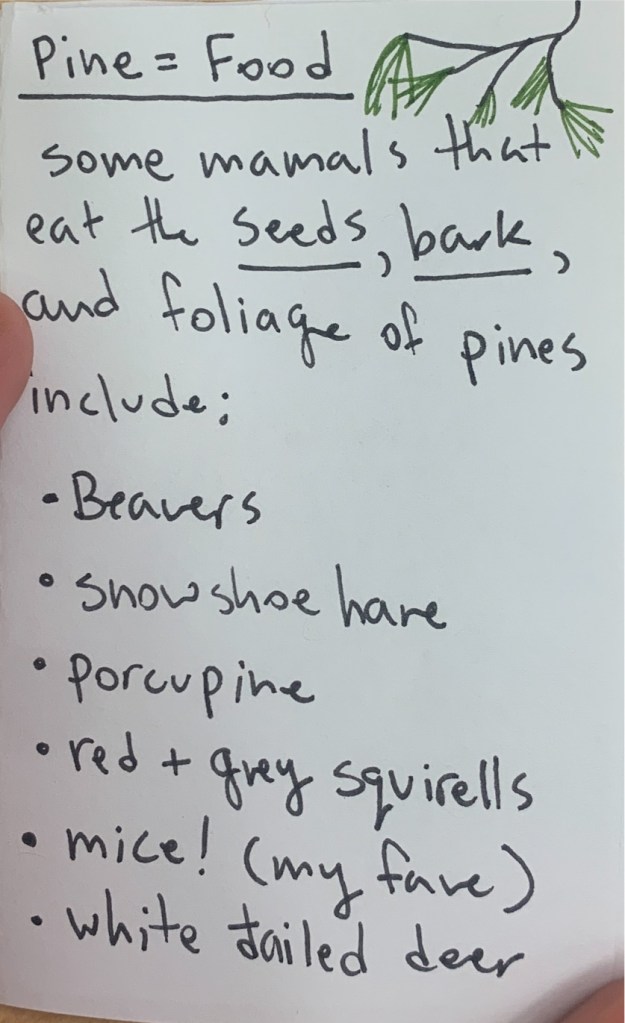 Pine = Food
some mamals that
eat the seeds, bark,
and foliage of pines
include;
• Beavers
• snowshoe hare
• porcupine
• red + grey squirells
• mice! (my fave)
• white tailed deer